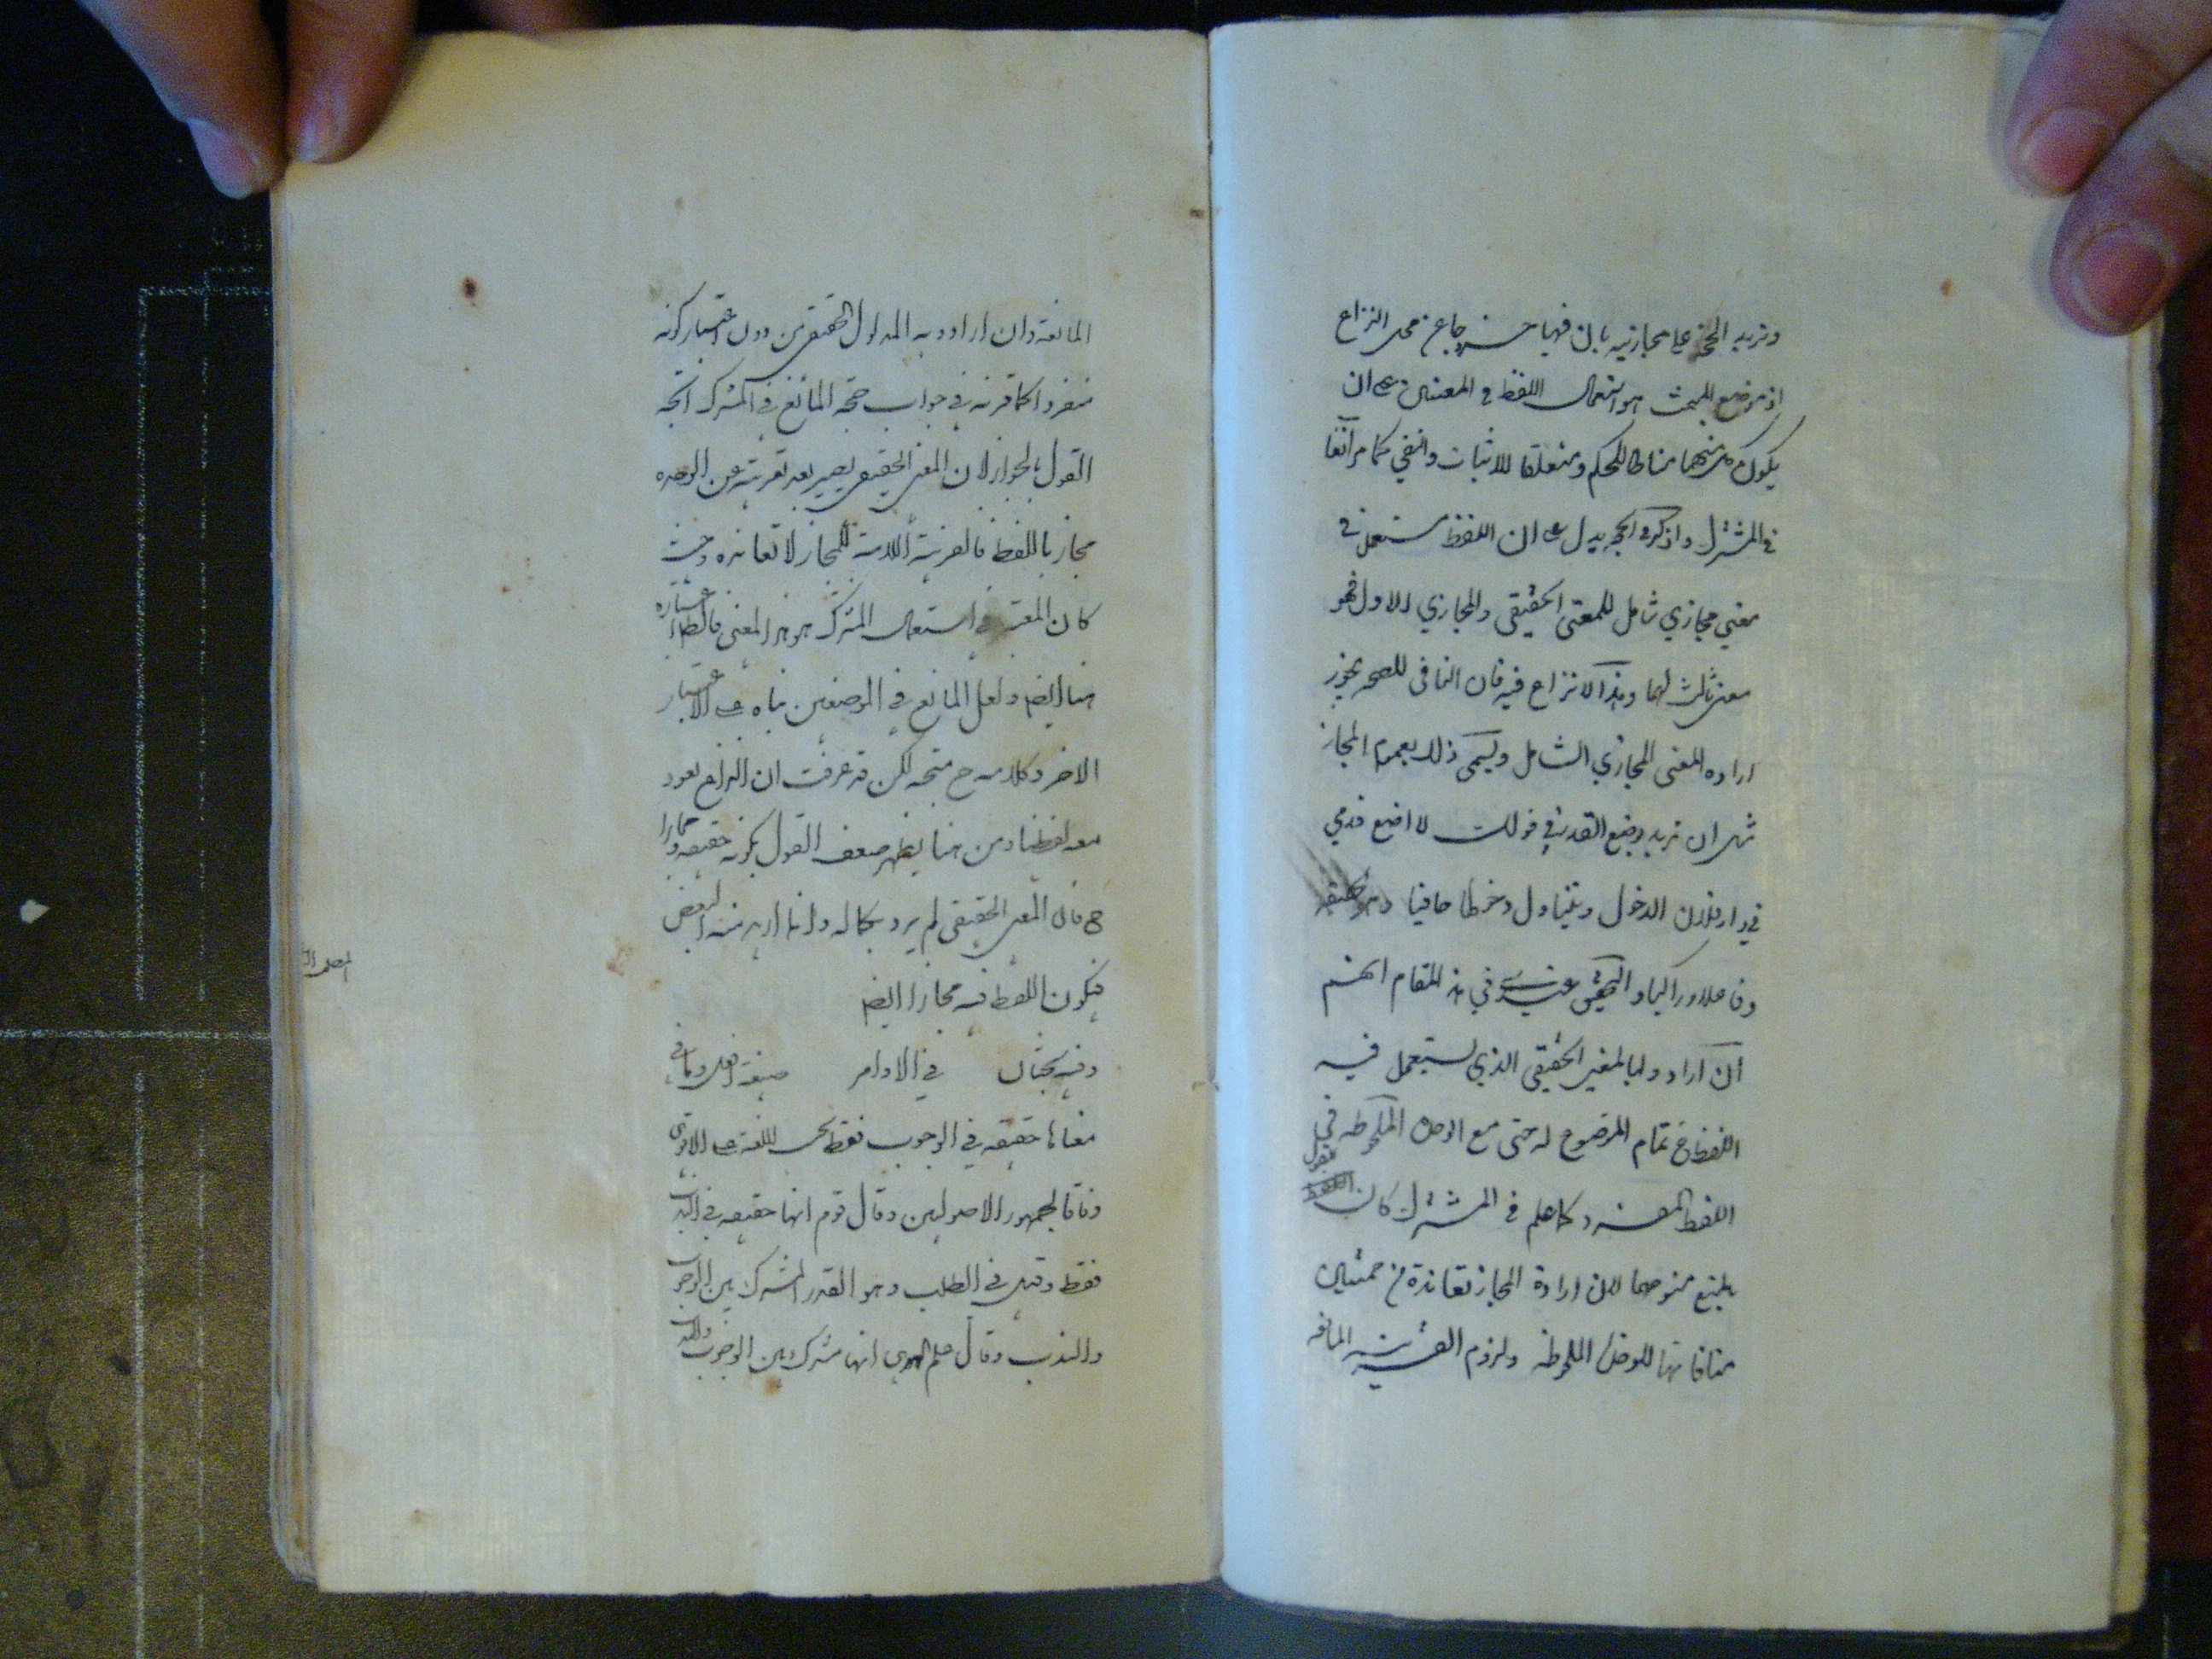 ونزيد الحجة على مجازيته بان فيها خروجا عن محل النزاع
اذ موضع البحث هو استعمال اللفظ في المعنيين على ان
يكون كل منهما مناطا للحكم ومتعلقا للاثبات والنفي كما مر آنفا
في المشترك وما ذكر في الحجة يدل على ان اللفظ مستعمل في
معنى مجازي شامل للمعنى الحقيقي والمجازي الاول فهو
معنى ثالث لهما وهذا لا نزاع فيه فان النافي للصحة يجوز
ارادة المعنى المجازي الشامل ويسمى ذلك بعموم المجاز
مثل ان تريد بوضع القدم في قولك لا اضع قدمي
في دار فلان الدخول فيتناول دخولها حافيا وهو الحقيقة
وناعلا وراكبا والتحقيق عندي في هذا المقام انهم
ان ارادوا بالمعنى الحقيقي الذي يستعمل فيه
اللفظ ح تمام الموضوع له حتى مع الوحدة الملحوظة في
اللفظ المفرد كما علم في المشترك كان القول
بالمنع متوجها لان ارادة المجاز تعانده من جهتين
منافاتها للوحدة الملحوظة ولزوم القرينة المانعة
المانعة وان ارادوا به المدلول الحقيقي من دون اعتبار كونه
منفردا كما قرر في جواب حجة المانع في المشترك اتجه
القول بالجواز لان المعنى الحقيقي يصير بعد تعريته عن الوحدة
مجازيا للفظ فالقرينة اللازمة للمجاز لا تعانده وحيث
كان المعتبر في استعمال المشترك هو هذا المعنى فالظاهر اعتباره
هنا ايضا ولعل المانع في الموضعين بناه على الاعتبار
الاخر وكلامه ح متجه لكن قد عرفت ان النزاع يعود
معه لفظيا ومن هنا يظهر ضعف القول بكونه حقيقة ومجازا
ح فان المعنى الحقيقي لم يرد بكماله وانما اريد منه البعض
فيكون اللفظ فيه مجازا ايضا
وفيه بحثان في الاوامر صيغة افعل وما في
معناها حقيقة في الوجوب فقط بحسب اللغة على الاقوى
وفاقا لجمهور الاصوليين وقال قوم انها حقيقة في الندب
فقط وقيل في الطلب وهو القدر المشترك بين الوجوب
والندب وقال علم الهدى انها مشترك بين الوجوب والندب